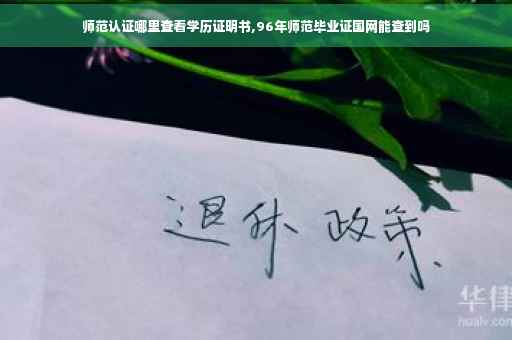 师范认证哪里查看学历证明书,96年师范毕业证国网能查到吗
退休 政策
华律
hualv.com